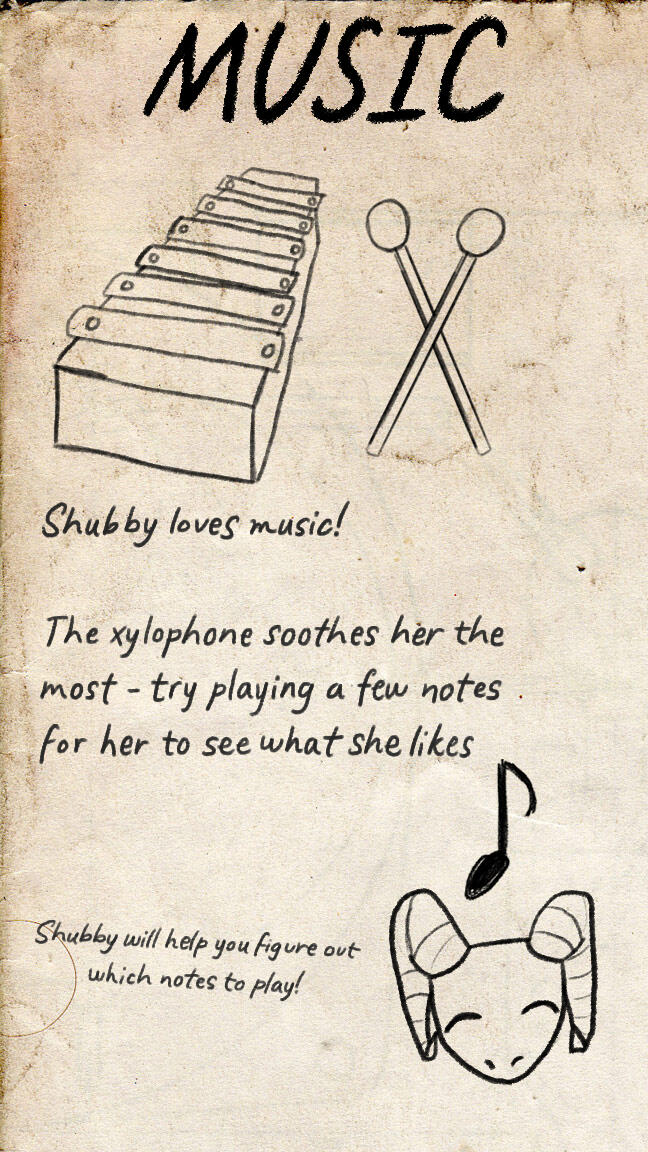 MUSIC
Shubby loves music!
The xylophone soothes her the
most - try playing a few notes
for her to see what she likes
Shubby will help you figure out
which notes to play!